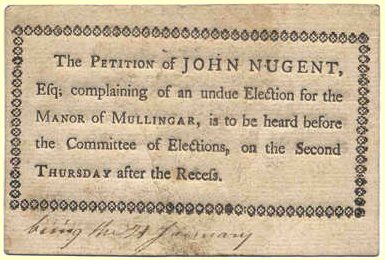 The PETITION of JOHN NUGENT,
Esq; complaining of an undue Election for the
MANOR of MULLINGAR, is to be heard before
the Committee of Elections, on the Second
THURSDAY after the Receſs.
being the 21 January